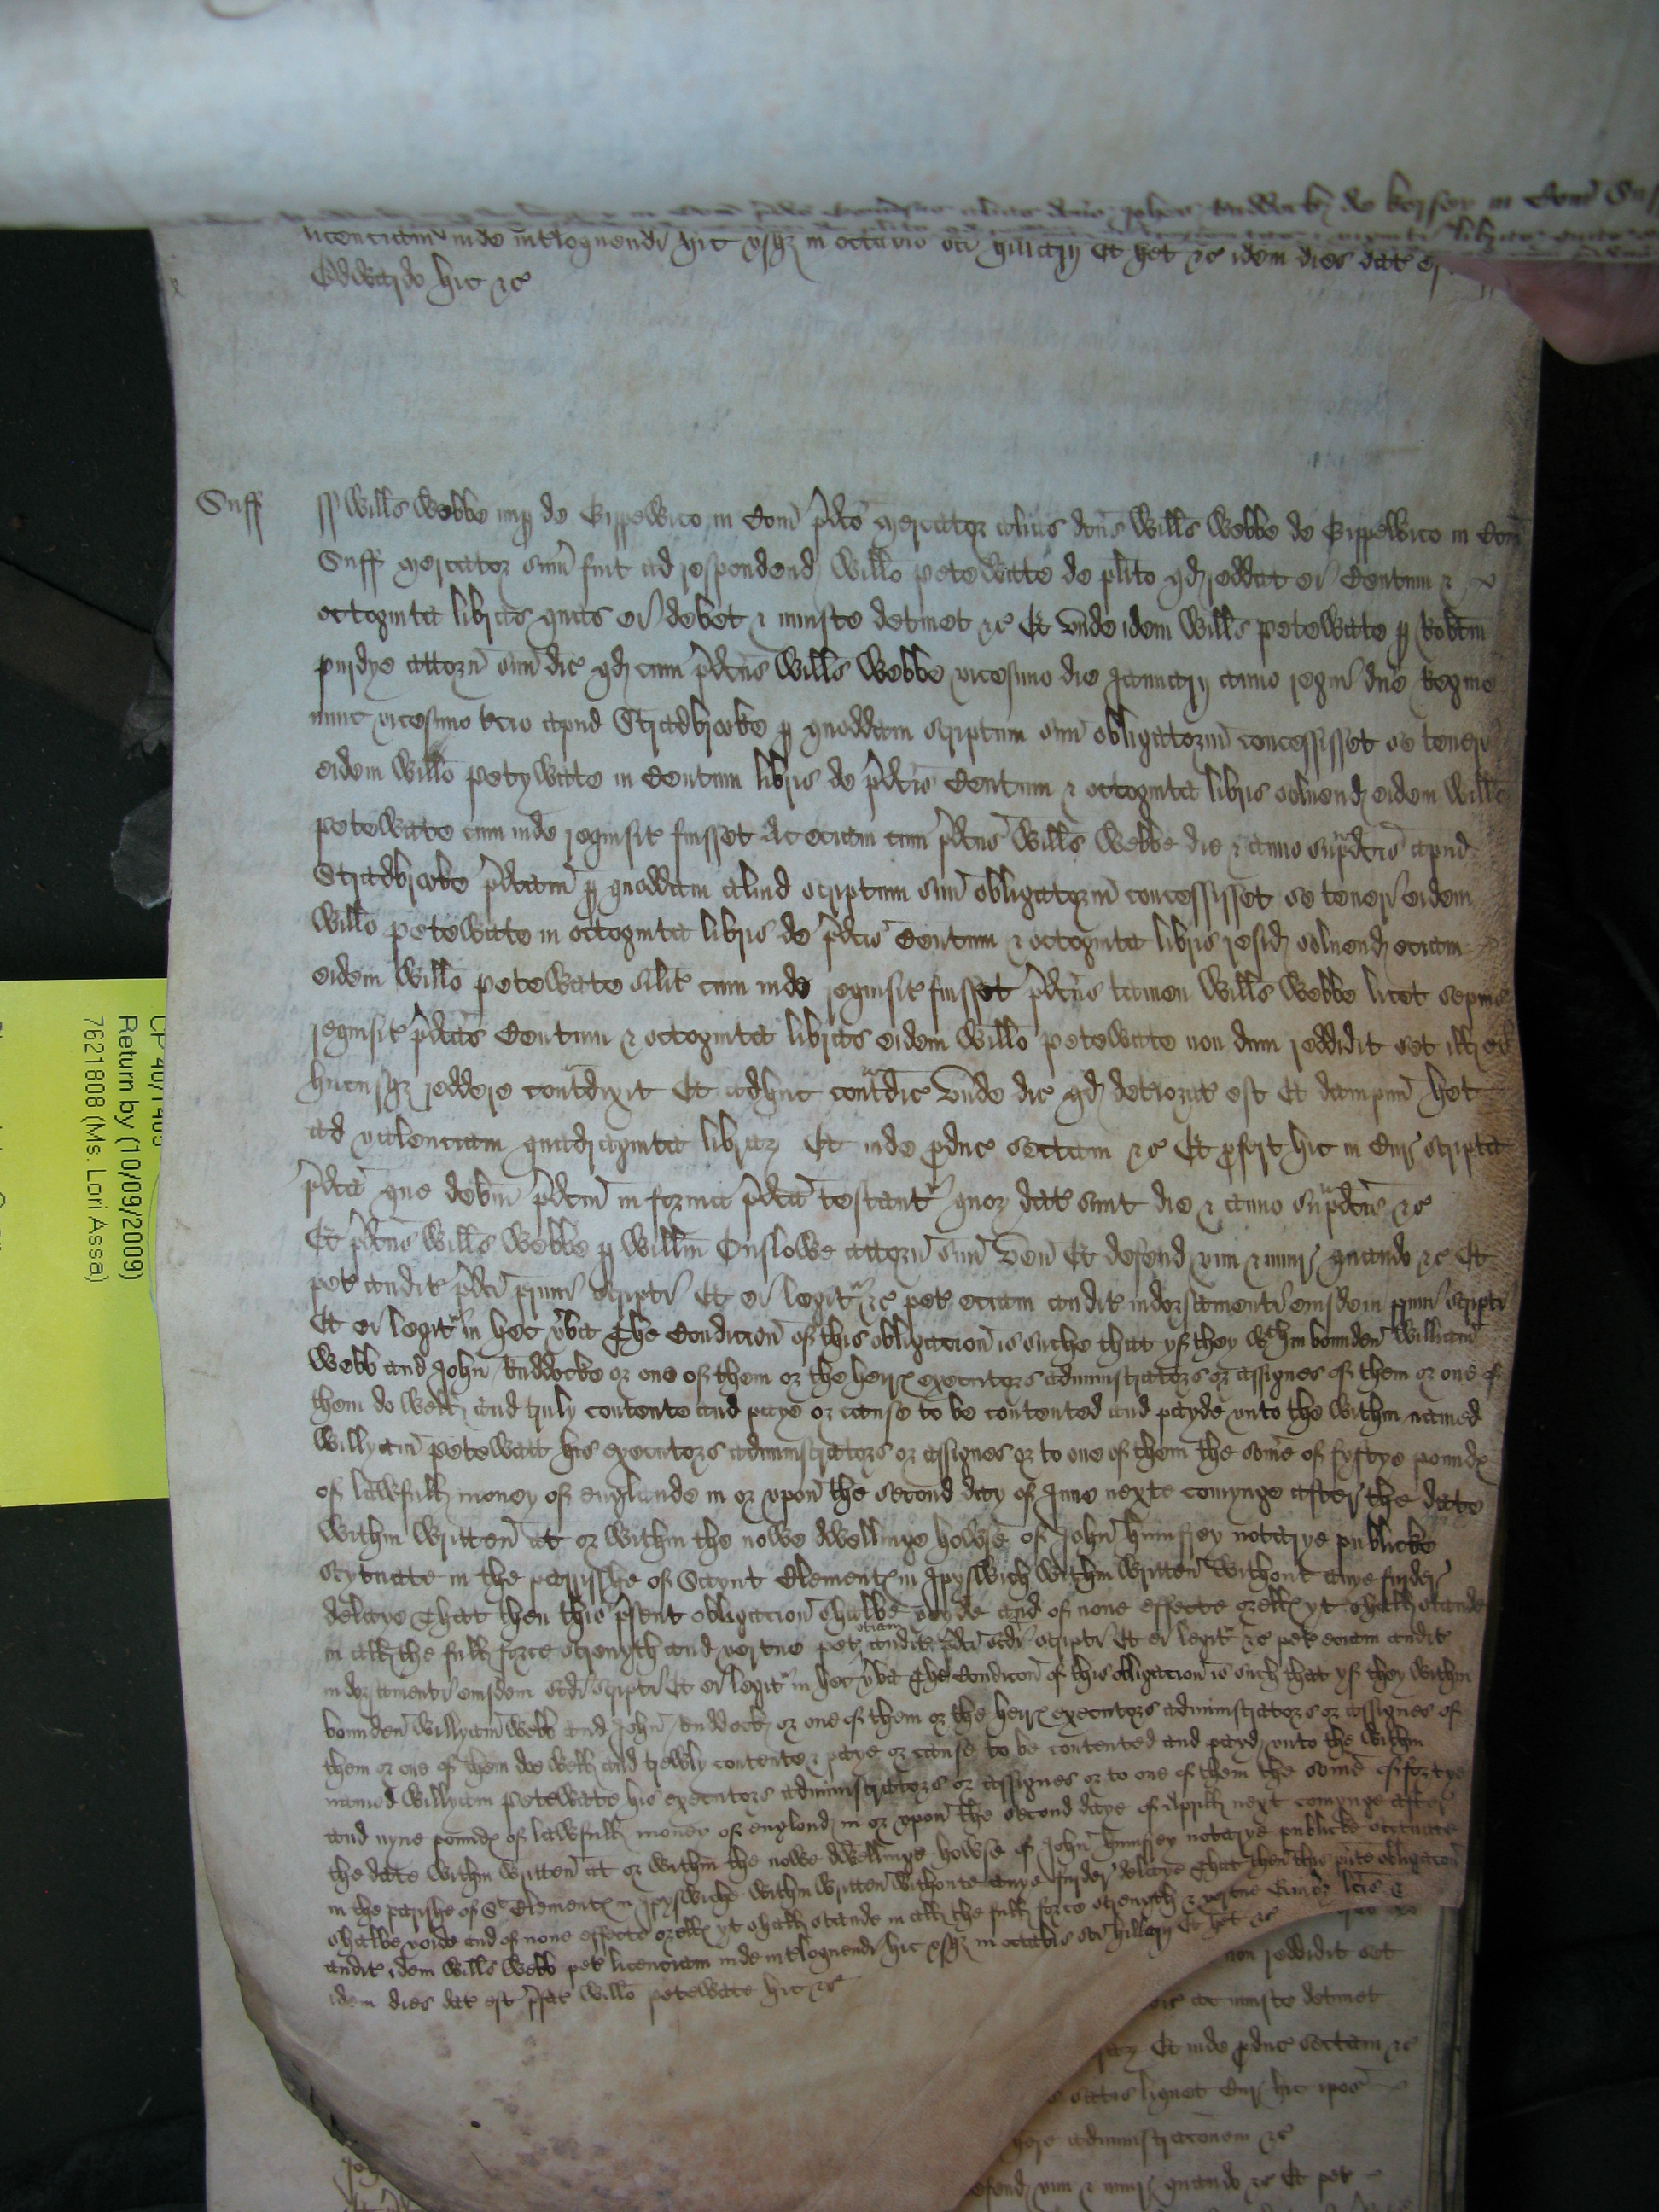 de kersey in Com Suff
licenciam inde int'loquendi hic usq in octavis sci Hillarij Et het &c idem dies dat e
Edwardo hic &c
Suff
Willms Webbe nup de Gippewico in Com pdco mercator alias dcus Willms Webbe de Gippewico in Com
Suff mercator sum fuit ad respondend Willo Petewate de plito qd reddat ei Centum &
octoginta libras quas ei debet & iniuste detinet &c Et unde idem Willms Petewate p Robtm
Purdye attorn suu dic qd cum pdcus Willms Webbe vicesimo die Januarij anno regni dne Regine
nunc vicesimo tcio apud Stradbroke p quoddam scriptum suu obligatoriu concessisset se teneri
eidem Willo Petywate in Centum libris de pdcis Centum & octoginta libris solvend eidem Willo
Petewate cum inde requisit fuisset Ac eciam cum pdcus Willms Webbe die & anno supdcis apud
Stradbroke pdcam p quoddam aliud scriptum suu obligatoriu concessisset se teneri eidem
Willo Petewate in octoginta libris de pdcis Centum & octoginta libris resid solvend eciam
eidem Willo Petewate silit cum inde requisit fuisset pdcus tamen Willms Webbe licet sepius
requisit pdcas Centum & octoginta libras eidem Willo Petewate non dum reddidit set ill ei
hucusq reddere contdixit Et adhuc contdic Unde dic qd deteriorat est Et dampnu het
ad valenciam quadraginta librar Et inde pduc sectam &c Et pfert hic in Cur scripta
pdca que debm pdcm in forma pdca testant quor dat sunt die & anno supdcis &c
Et pdcus Willms Webbe p Willm Onslowe attorn suu ven Et defend vim & iniur quando &c Et
pet audit pdci primi scripti Et ei legit &c pet eciam audit indorsamenti eiusdem primi scripti
Et ei legit in hec vba The Condicion of this obligacion is suche that yf they wthin bounden William
Webb and John Ruddocke or one of them or the heyrs executors administrators or assignes of them or one of
them do well and truly contente and paye or cause to be contented and payde unto the within named
Willyam Petewatt his executors administrators or assignes or to one of them the some of fyftye pounds
of lawfull money of englande in or upon the second day of June nexte comynge after the date
within written at or within the nowe dwellinge howse of John Humfrey notarye publicke
scytuate in the parisshe of Saynt Clements in Ipyswich within written without anye furder
delaye That then this psent obligacion shalbe voyde and of none effecte or ells yt shall stande
in all the full force strenyth and vertue pet eciam audit pdci scdi scripti Et ei legit &c pet eciam audit
indorsamenti eiusdem scdi scripti Et ei legit in hec vba The Condicon of this obligacion is such that yf they within
bounden Willyam Webb and John Ruddock or one of them or the heyrs executors administrators or assignes of
them or one of them doe well and trewly contente & paye or cause to be contented and payd unto the within
named Willyam Petewate his executors administrators or assignes or to one of them the some of fortye
and nyne pounds of lawfull money of englond in or upon the second daye of Aprill next comynge after
the date within written at or within the nowe dwellinge howse of John Humfrey notarye publicke scituate
in the parishe of St Clements in Ipyswiche within written withoute anye furder delaye That then this psnte obligacon
shalbe voide and of none effecte or ells yt shall stande in all the full force strength & vertue Quibz lcis &
audit idem Willms Webb pet licenciam inde intloquendi hic usq in octabis sci Hillarij Et het &c
idem dies dat est pfat Willo Petewate hic &c
non reddidit set
ac iniuste detinet
Et inde pduc sectam &c
satis liquet Cur hic ipos
administraconem &c
defend vim & iniur quando &c Et pet
CP 40/1405
Return by (10/09/2009)
7621808 (Ms. Lori Assa)